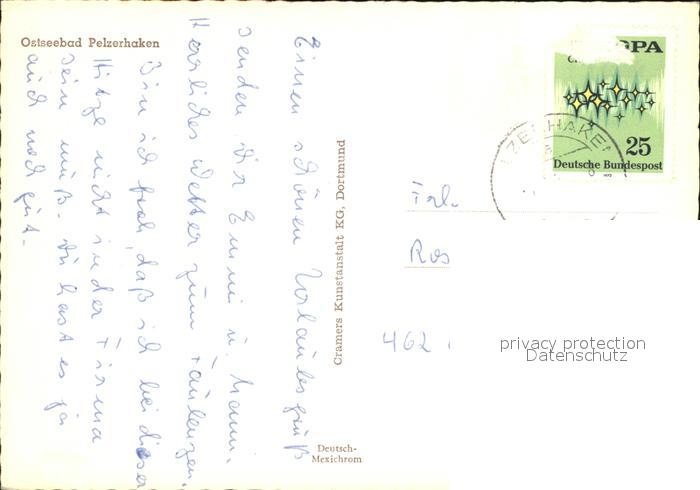 Ostseebad Pelzerhaken
Einen schönen Urlaubsgruß
senden Dir Emmi u. Mann.
Herrliches Wetter zum Faulenzen.
Bin ich froh, daß ich bei dieser
Hitze nicht in der Firma
sein muß. Du hast es ja
auch noch gut.
Cramers Kunstanstalt KG, Dortmund
Deutsch-
Mexichrom
OPA
25
Deutsche Bundespost
1972
ZERHAKEN
Frl.
Ros
462
privacy protection
Datenschutz